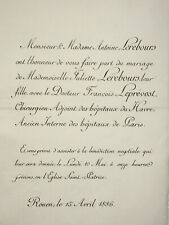 Monsieur & Madame Antoine Lerebours
ont l'honneur de vous faire part du mariage
de Mademoiselle Juliette Lerebours, leur
fille, avec le Docteur François Leprevost,
Chirurgien Adjoint des hôpitaux du Havre,
Ancien Interne des hôpitaux de Paris.
Et vous prient d'assister à la bénédiction nuptiale qui
leur sera donnée, le Lundi 10 Mai à onze heures
précises, en l'Eglise Saint-Patrice.
Rouen, le 15 Avril 1886.